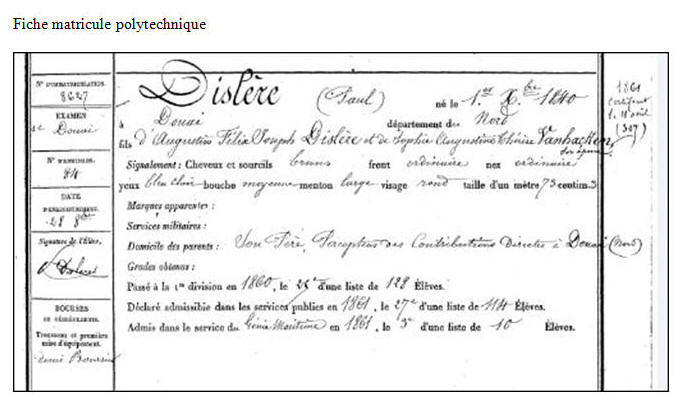 Fiche matricule polytechnique
N° D'IMMATRICULATION.
8627
EXAMEN
de Douai
N° D'ADMISSION.
84
DATE
D'ENREGISTREMENT.
28 8bre
Signature de l'Élève,
P Dislere
BOURSES
Trousseau et première
mise d'équipement.
demi Bourse
Dislère (Paul) né le 1er Xbre 1840
à Douai département du Nord
fils d'Augustin Félix Joseph Dislère et de Sophie Augustine Vanhacken
son épouse
Signalement: Cheveux et sourcils bruns front ordinaire nez ordinaire
yeux bleu clair bouche moyenne menton large visage rond taille d'un mètre 73 centim.3
Marques apparentes :
Services militaires :
Domicile des parents : Son Père, Percepteur des Contributions Directes à Douai (Nord)
Grades obtenus :
Passé à la 1re division en 1860, le 25e d'une liste de 128 Élèves.
Déclaré admissible dans les services publics en 1861, le 27e d'une liste de 114 Élèves.
Admis dans le service du Génie Maritime en 1861, le 3e d'une liste de 10 Élèves.
1861
certificat
le 18 avril
(307)